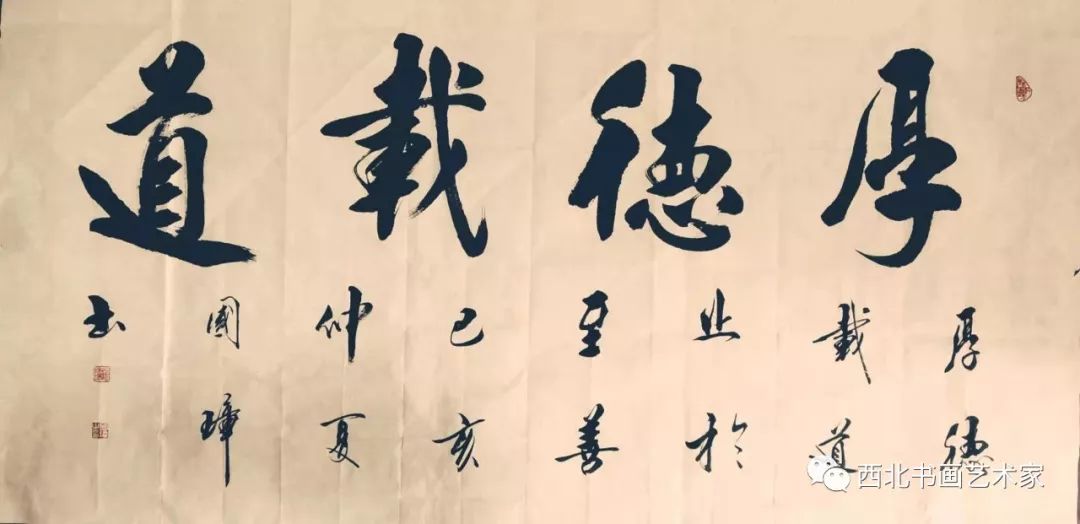 厚德載道
厚德
載道
止於
至善
己亥
仲夏
國璋
书
西北书画艺术家